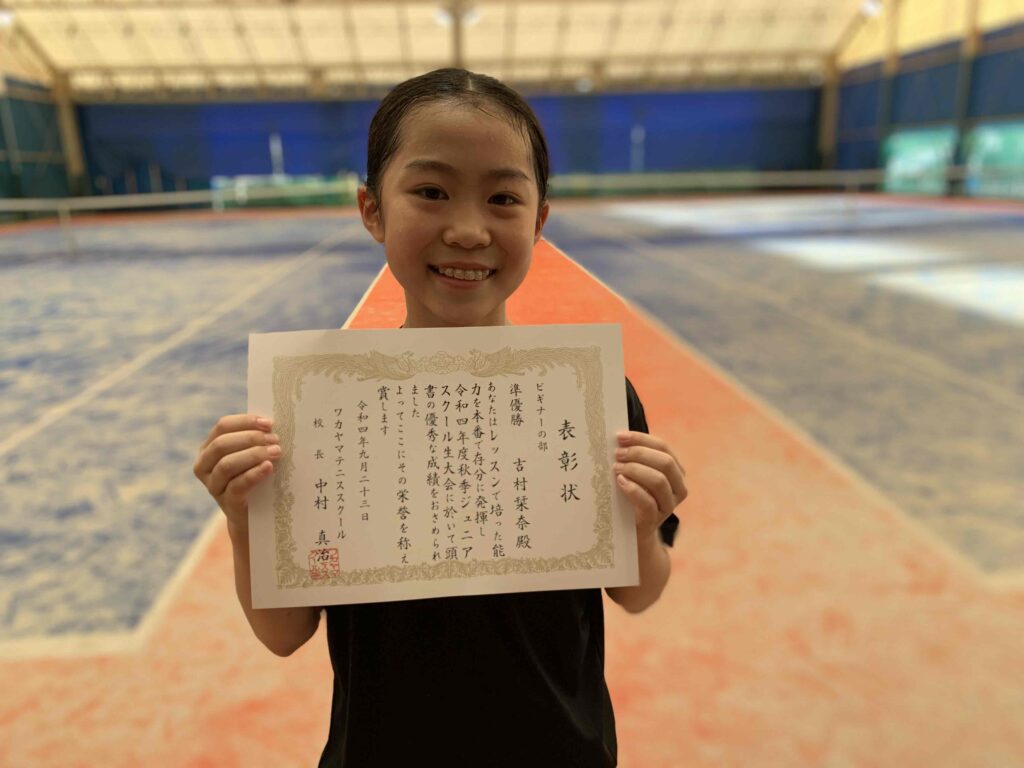 表彰状
ビギナーの部
準優勝 吉村栞奈殿
あなたはレッスンで培った能
力を本番で存分に発揮し
令和四年度秋季ジュニア
スクール生大会に於いて頭
書の優秀な成績をおさめられ
ました
よってここにその栄誉を称え
賞します
令和四年九月二十三日
ワカヤマテニススクール
校長 中村 真治